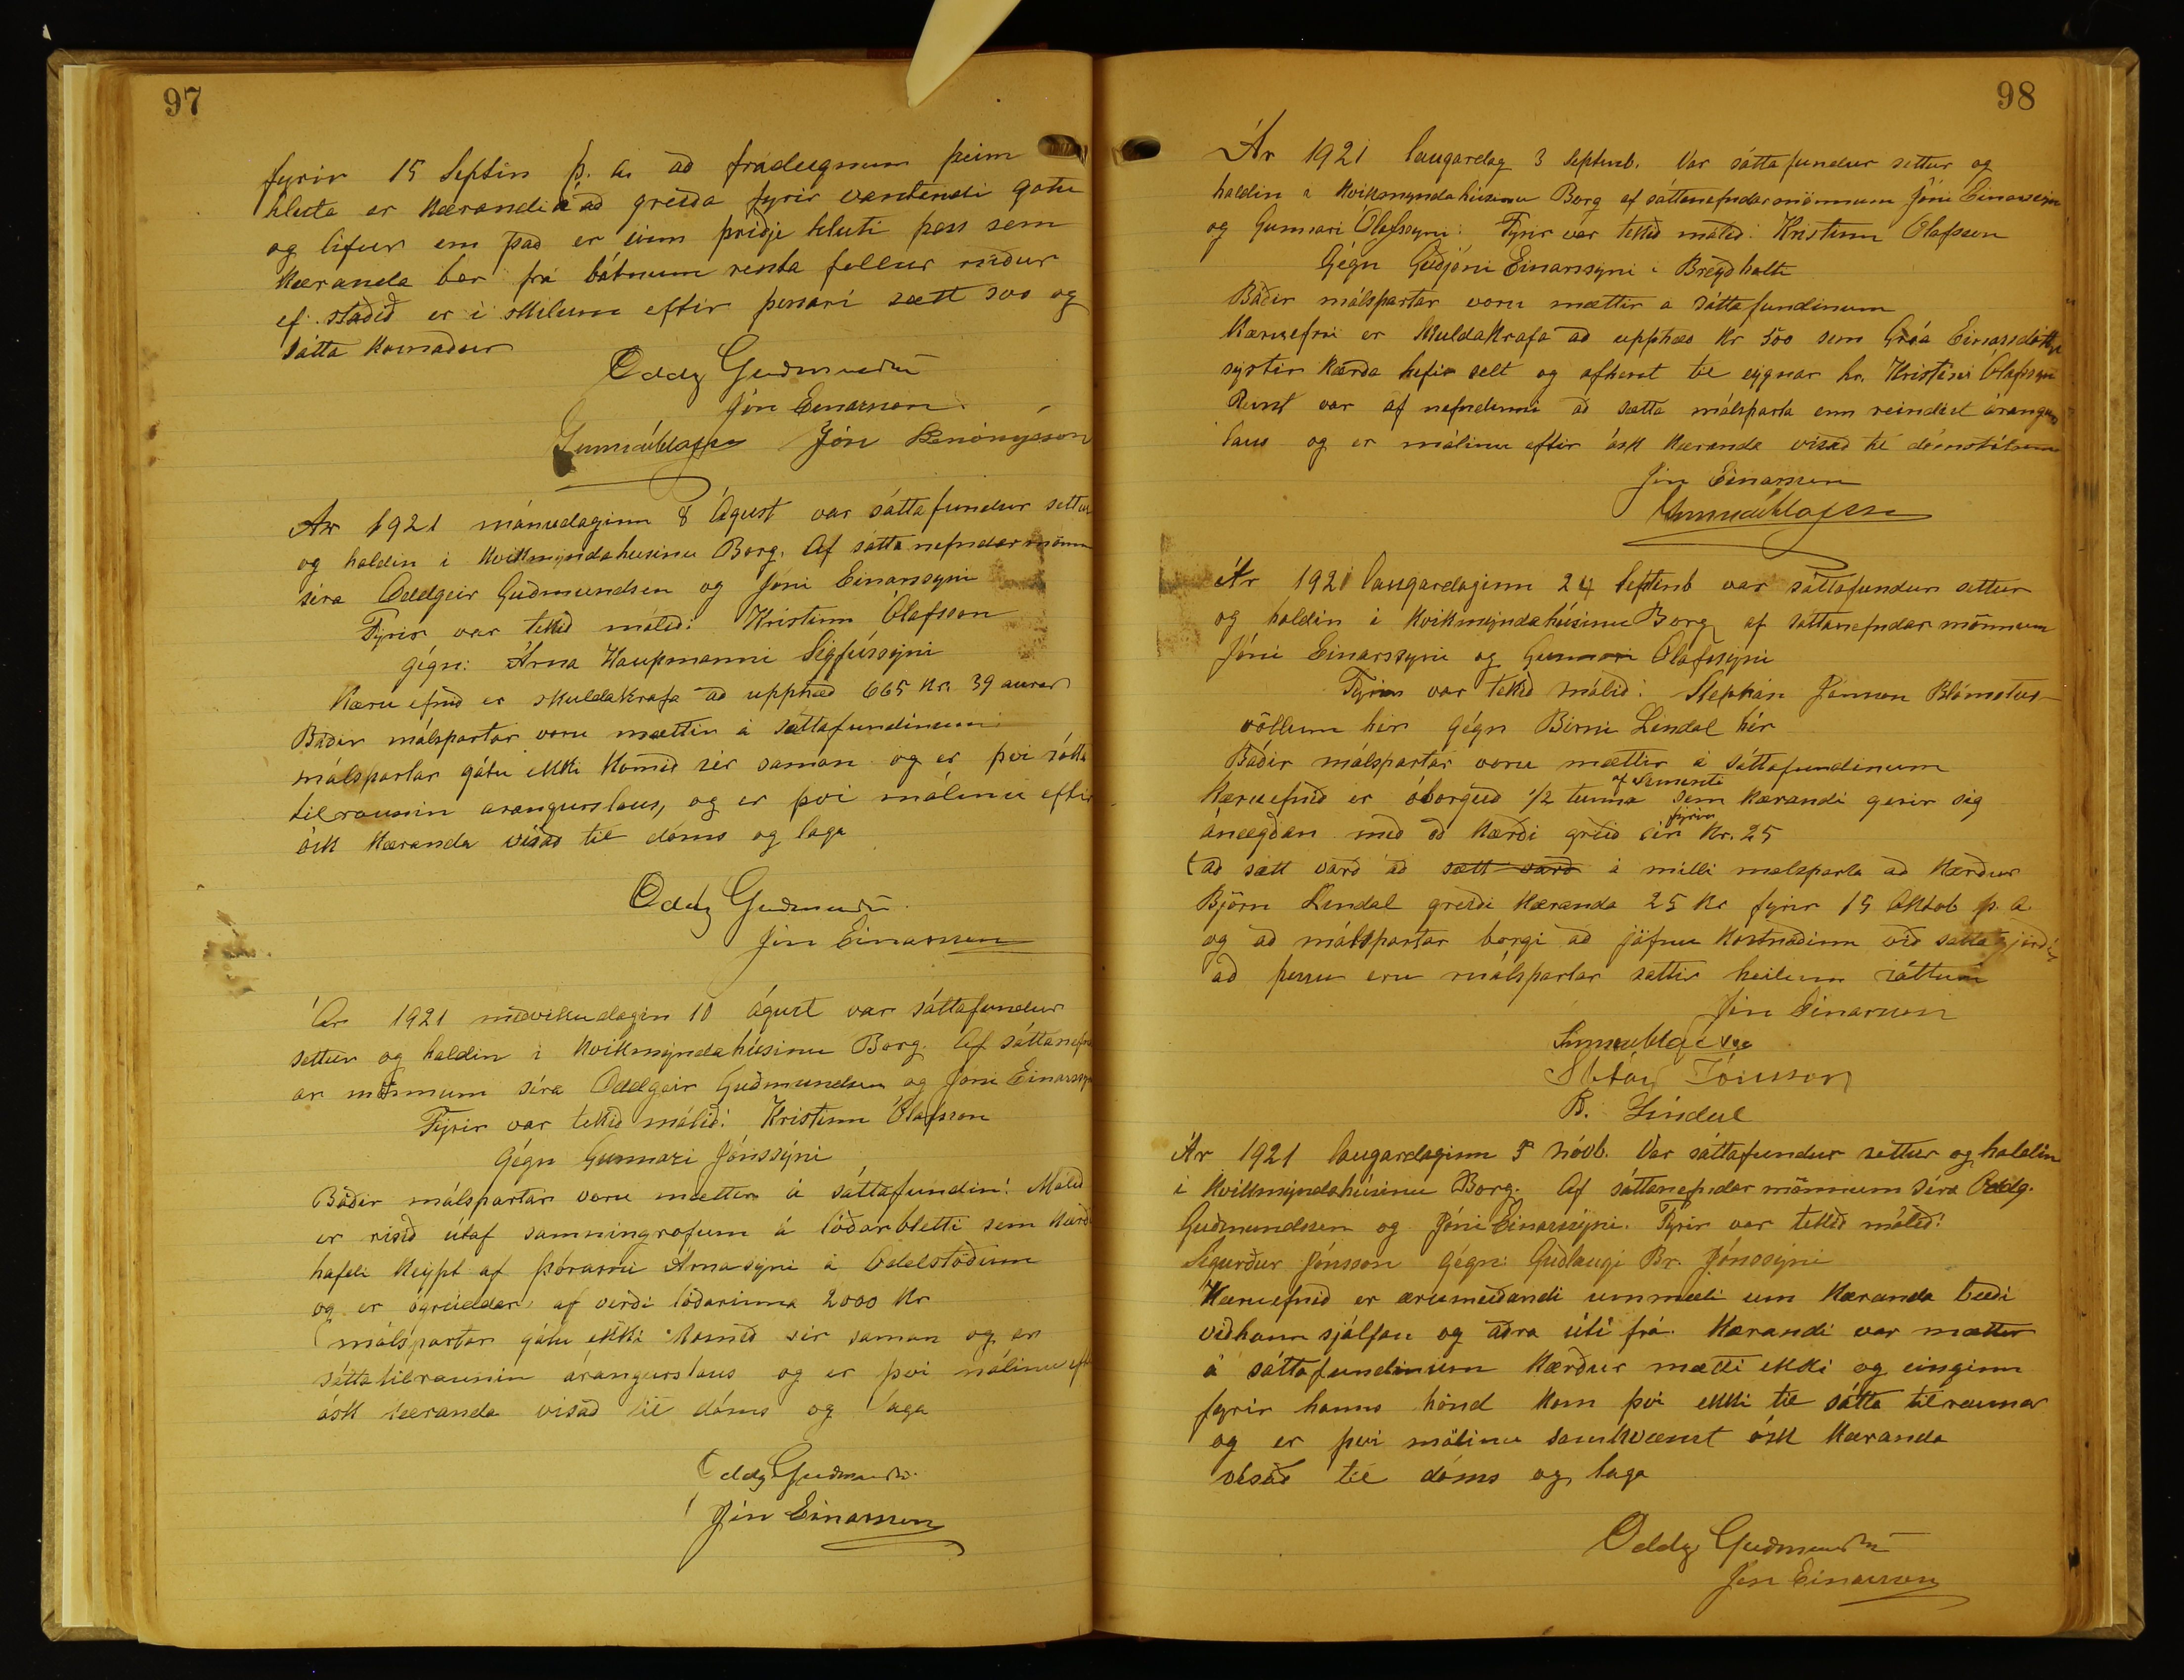 97
fyrir 15 Septm þ. á. að frádregnum þeim
hluta er Kærandi á að greiða fyrir vantandi gotu
og lifur em það er einn þriðje hluti þess sem
Kæranda bar frá bátnum renta fellur niður
ef staðið er i skilum eftir þessari sætt svo og
sátta Kosnaður
Oddg Guðmundsen
Jón Einarsson
Gunnar Ólafsson Jón Benónýsson
Ár 1921 mánudaginn 8 Ágúst var sáttafundur settur
og haldin i Kvikmyndahúsinu Borg. Af sáttanefndarmönn
séra Oddgeir Guðmundsen og Jóni Einarssyni
Fyrir var tekið málið: Kristinn Ólafsson
gégn: Árna Kaupmanni Sigfússyni
Kæruefnið er skuldakrafa að upphæð 665 Kr. 39 aurar
Báðir málspartar voru mættir á sáttafundinum
málspartar gátu ekki Komið sér saman og er því sátta
tilraunin arangurslaus, og er því málinu eftir
ósk Kæranda vísað til dóms og laga
Oddg Guðmundsen
Jón Einarsson
Ár 1921 miðvikudagin 10 Ágúst var sáttafundur
settur og haldin i Kvikmyndahúsinu Borg. Af sáttanefnd
ar mönnum séra Oddgeir Guðmundsen og Jóni Einarssyni
Fyrir var tekið málið: Kristinn Ólafsson
Gégn Gunnari Jónssyni
Báðir málspartar voru mættir á sáttafundin: Málið
er risið útaf samningrofum á lóðarbletti sem Kærði
hafdi Keypt af Þórarni Árnasyni á Oddstöðum
og er ógreiddar af verði lóðarinna 2000 Kr
málspartar gátu ekki Komið sér saman og er
sáttatilraunin árangurslaus og er því málinu eftir
ósk Kæranda visað til dóms og laga
Oddg Guðmundsen
Jón Einarsson
98
Ár 1921 laugardag 3 Septemb. Var sáttafundur settur og
haldin i Kvikmyndahúsinu Borg af sáttanefndarmönnum Jóni Einarssyni
og Gunnari Ólafssyni: Fyrir var tekið málið: Kristinn Ólafsson
Gégn Guðjóni Einarssyni i Breyðholti
Báðir málspartar voru mættir a sáttafundinum
Kæruefni er skuldakrafa að upphæð Kr 500 sem Gróa Einarsdóttir
systir Kærða hefir selt og afhent til eygnar hr. Kristini Ólafssyni
Reynt var af nefndinni að sætta málsparta enn reindist árangurs
laus og er málinu eftir ósk Kæranda vísað til dómstólanna
Jón Einarsson
Gunnar Ólafsson
Ár 1921 laugardaginn 24 Septemb var sáttafundur settur
og haldin i Kvikmyndahúsinu Borg af sáttanefndarmönnum
Jóni Einarssyni og Gunnari Ólafssyni
Fyrir var tekið málið: Stephán Jónsson Blómstur-
völlum hér gégn Birni Lindal hér
Báðir málspartar voru mættir á sáttafundinum
af Sementi
Kæruefnið er óborguð 1/2 tunna sem Kærandi gerir sig
fyrir
ánægðan með að Kærði greið sér Kr. 25
að sætt varð að sætt varð á milli malsparta að Kærður
Björn Lindal greiði Kæranda 25 Kr fyrir 15 Oktob þ. á.
og að málspartar borgi að jöfnu Kostnaðinn við sáttagjörðir
að þessu eru málspartar sattir heilum sáttum
Jón Einarsson
Gunnar Ólafsson
Stefán Jónsson
B. Lindal
Ár 1921 laugardaginn 5 nóvb. Var sáttafundur settur og haldin
i Kvikmyndahúsinu Borg. Af sáttanefndarmönnum Séra Oddg.
Guðmundssen og Jóni Einarssyni. Fyrir var tekið málið:
Sigurður Jónsson gégn: Guðlaugi Br. Jónssyni
Kæruefnið er ærumeiðandi ummæli um Kæranda bæði
við hann sjálfan og aðra úti frá. Kærandi var mættur
á sáttafundinum Kærður mætti ekki og einginn
fyrir hanns hönd Kom því ekki til sátta tilraunar
og er því málinu samkvæmt ósk Kæranda
vísað til dóms og laga
Oddg. Guðmundsen
Jón Einarsson